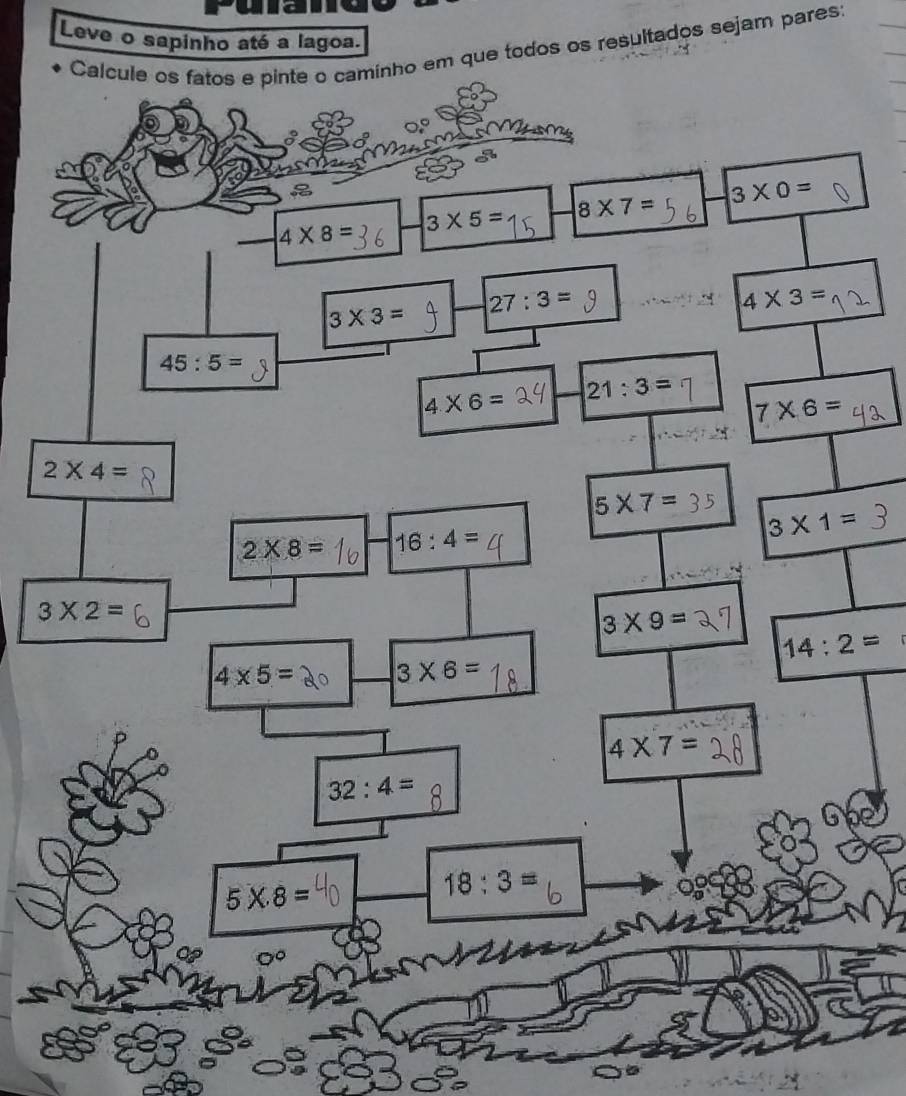 Leve o sapinho até a lagoa.
• Calcule os fatos e pinte o caminho em que todos os resultados sejam pares:
4 X 8 = 36
3 X 5 = 15
8 X 7 = 56
3 X 0 = 0
3 X 3 = 9
27 : 3 = 9
4 X 3 = 12
45 : 5 = 9
4 X 6 = 24
21 : 3 = 7
7 X 6 = 42
2 X 4 = 8
5 X 7 = 35
3 X 1 = 3
2 X 8 = 16
16 : 4 = 4
3 X 2 = 6
3 X 9 = 27
14 : 2 =
4 x 5 = 20
3 X 6 = 18
4 X 7 = 28
32 : 4 = 8
5 X 8 = 40
18 : 3 = 6